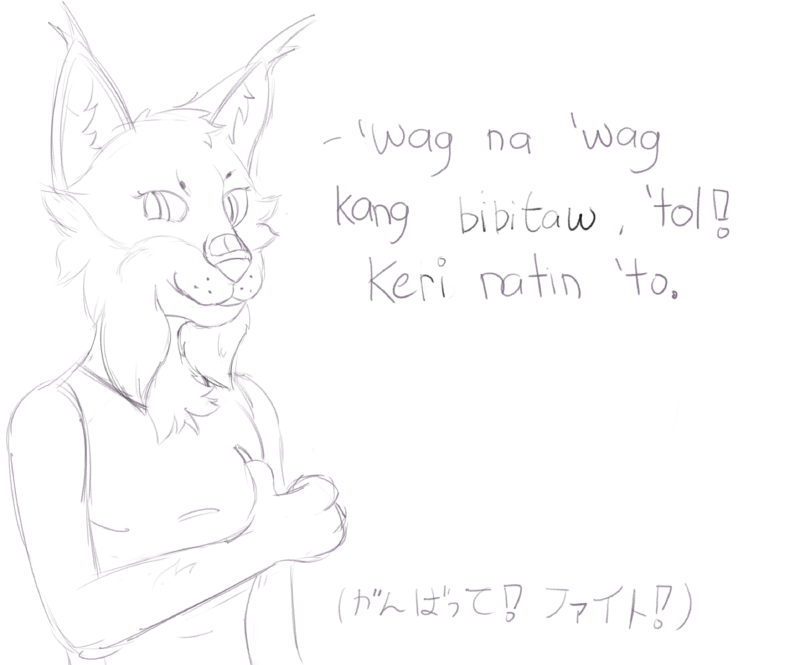 - 'wag na 'wag
kang bibitaw, 'tol!
Keri natin 'to.
(がんばって! ファイト!)